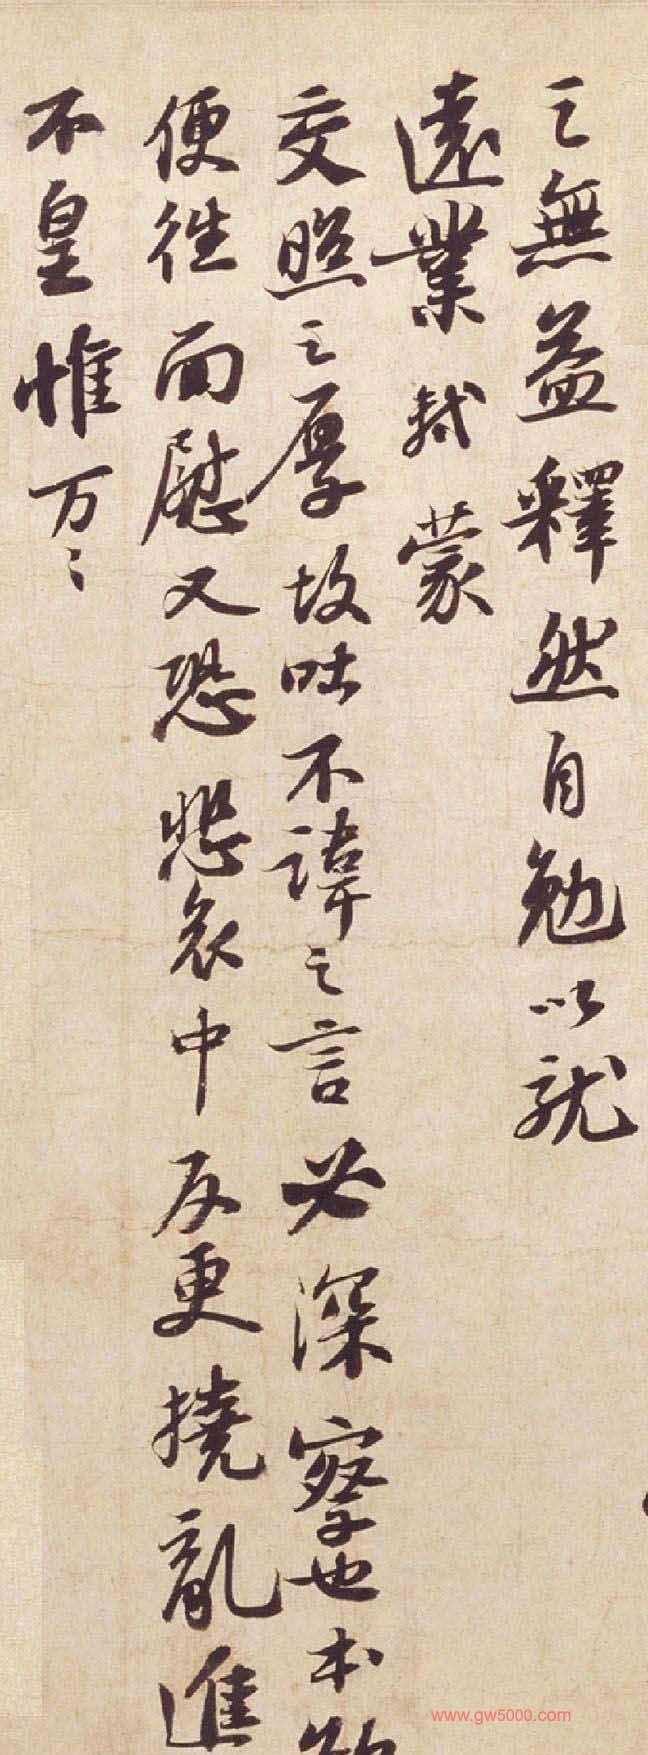 之無益釋然自勉以就
遠業軾蒙
交照之厚故吐不諱之言必深察也本欲
便往面慰又恐悲哀中反更撓亂進
不皇惟万〻
www.gw5000.com